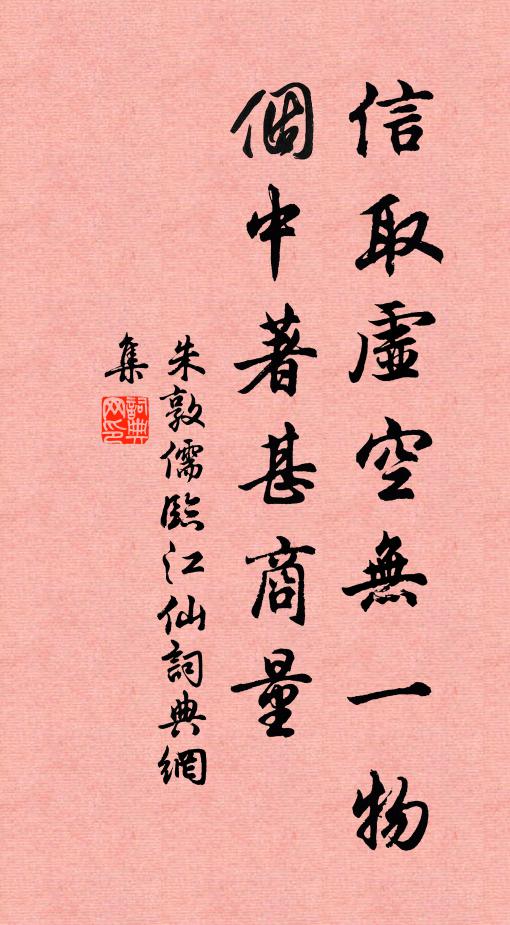 信取虛空無一物
個中著甚商量
朱敦儒臨江仙詞典網
集
詞典
网印